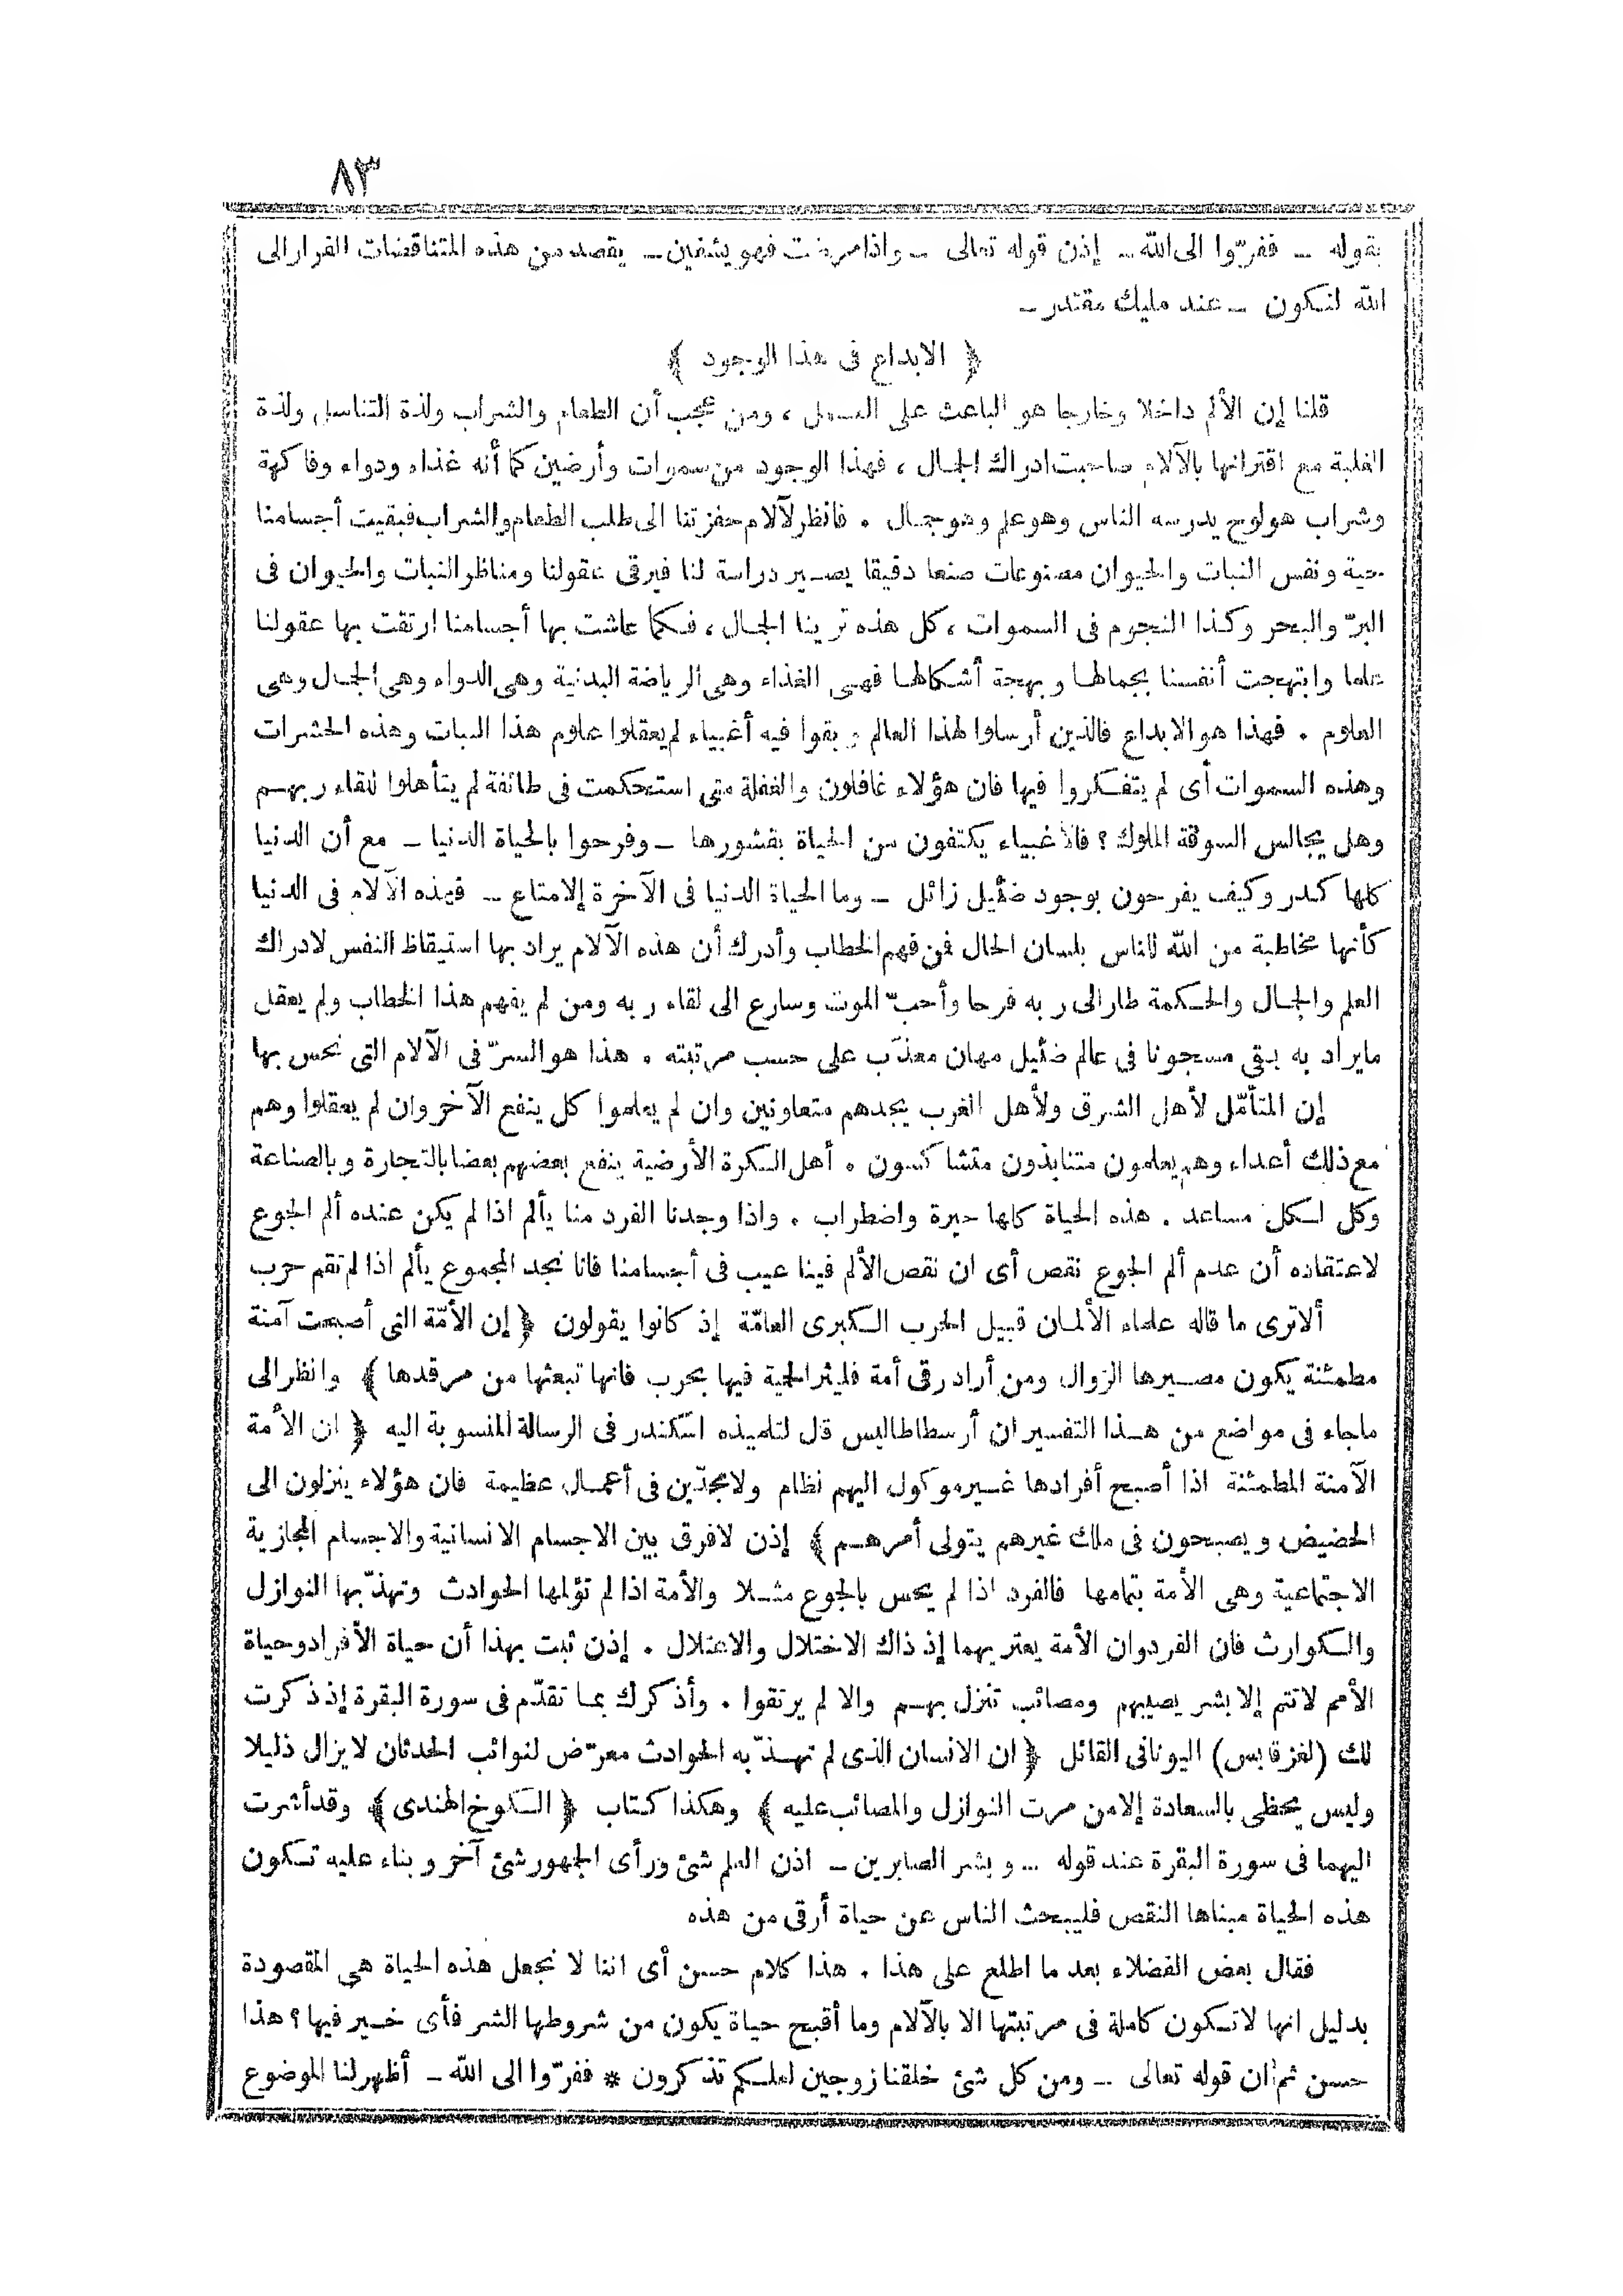 ٨٣
بقوله ـ ففرّوا الى الله ـ إذن قوله تعالى ـ واذا مرضت فهو يشفين ـ يقصد من هذه المتناقضات الفرار الى
الله لنكون ـ عند مليك مقتدر ـ
﴿ الابداع فى هذا الوجود ﴾
قلنا إن الألم داخلا وخارجا هو الباعث على العمل ، ومن عجب أن الطعام والشراب ولذة التناسل ولذة
الغلبة مع اقترانها بالآلام صاحبت ادراك الجمال ، فهذا الوجود من سموات وأرضين كما أنه غذاء ودواء وفاكهة
وشراب هو لوح يدرسه الناس وهو علم وهو جمال . فانظر لآلام حفزتنا الى طلب الطعام والشراب فبقيت أجسامنا
حية ونفس النبات والحيوان مصنوعات صنعا دقيقا يصير دراسة لنا فيرقى عقولنا ومناظر النبات والحيوان فى
البرّ والبحر وكذا النجوم فى السموات ، كل هذه ترينا الجمال ، فكما عاشت بها أجسامنا ارتقت بها عقولنا
علما وابتهجت أنفسنا بجمالها وبهجة أشكالها فهى الغذاء وهى الرياضة البدنية وهى الدواء وهى الجمال وهى
العلوم . فهذا هو الابداع فالذين أرسلوا لهذا العالم وبقوا فيه أغبياء لم يعقلوا علوم هذا النبات وهذه الحشرات
وهذه السموات أى لم يتفكروا فيها فان هؤلاء غافلون والغفلة متى استحكمت فى طائفة لم يتأهلوا للقاء ربهم
وهل يجالس السوقة الملوك ؟ فالأغبياء يكتفون من الحياة بقشورها ـ وفرحوا بالحياة الدنيا ـ مع أن الدنيا
كلها كدر وكيف يفرحون بوجود ضئيل زائل ـ وما الحياة الدنيا فى الآخرة إلا متاع ـ فهذه الآلام فى الدنيا
كأنها مخاطبة من الله للناس بلسان الحال فمن فهم الخطاب وأدرك أن هذه الآلام يراد بها استيقاظ النفس لادراك
العلم والجمال والحكمة طار الى ربه فرحا وأحبّ الموت وسارع الى لقاء ربه ومن لم يفهم هذا الخطاب ولم يعقل
مايراد به بقى مسجونا فى عالم ضئيل مهان معذّب على حسب مرتبته . هذا هو السرّ فى الآلام التى نحس بها
إن المتأمّل لأهل الشرق ولأهل الغرب يجدهم متعاونين وان لم يعلموا كل ينفع الآخر وان لم يعقلوا وهم
مع ذلك أعداء وهم يعلمون متنابذون متشاكسون . أهل الكرة الأرضية ينفع بعضهم بعضا بالتجارة وبالصناعة
وكل لكل مساعد . هذه الحياة كلها حيرة واضطراب . واذا وجدنا الفرد منا يألم اذا لم يكن عنده ألم الجوع
لاعتقاده أن عدم ألم الجوع نقص أى ان نقص الألم فينا عيب فى أجسامنا فانا نجد المجموع يألم اذا لم تقم حرب
ألاترى ما قاله علماء الألمان قبيل الحرب الكبرى العامّة إذ كانوا يقولون ﴿ إن الأمّة التى أصبحت آمنة
مطمئنة يكون مصيرها الزوال ومن أراد رقى أمة فليثر الحمية فيها بحرب فانها تبعثها من مرقدها ﴾ وانظر الى
ماجاء فى مواضع من هذا التفسير ان أرسطاطاليس قال لتلميذه اسكندر فى الرسالة المنسوبة اليه ﴿ ان الأمة
الآمنة المطمئنة اذا أصبح أفرادها غير موكول اليهم نظام ولا مجدّين فى أعمال عظيمة فان هؤلاء ينزلون الى
الحضيض ويصبحون فى ملك غيرهم يتولى أمرهم ﴾ إذن لافرق بين الاجسام الانسانية والاجسام المجازية
الاجتماعية وهى الأمة بتمامها فالفرد اذا لم يحس بالجوع مثلا والأمة اذا لم تؤلمها الحوادث وتهذّبها النوازل
والكوارث فان الفرد وان الأمة يعتريهما إذ ذاك الاختلال والاعتلال . إذن ثبت بهذا أن حياة الأفراد وحياة
الأمم لاتتم إلا بشر يصيبهم ومصائب تنزل بهم والا لم يرتقوا . وأذكرك بما تقدّم فى سورة البقرة إذ ذكرت
لك (لغز قابس) اليونانى القائل ﴿ ان الانسان الذى لم تهذّبه الحوادث معرّض لنوائب الحدثان لايزال ذليلا
وليس يحظى بالسعادة إلا من مرت النوازل والمصائب عليه ﴾ وهكذا كتاب ﴿ الكوخ الهندى ﴾ وقد أشرت
اليهما فى سورة البقرة عند قوله ـ وبشر الصابرين ـ اذن العلم شئ ورأى الجمهور شئ آخر وبناء عليه تكون
هذه الحياة مبناها النقص فليبحث الناس عن حياة أرقى من هذه
فقال بعض الفضلاء بعد ما اطلع على هذا . هذا كلام حسن أى اننا لا نجعل هذه الحياة هى المقصودة
بدليل انها لاتكون كاملة فى مرتبتها الا بالآلام وما أقبح حياة يكون من شروطها الشر فأى خير فيها ؟ هذا
حسن ثم ان قوله تعالى ـ ومن كل شئ خلقنا زوجين لعلكم تذكرون * ففرّوا الى الله ـ أظهر لنا الموضوع